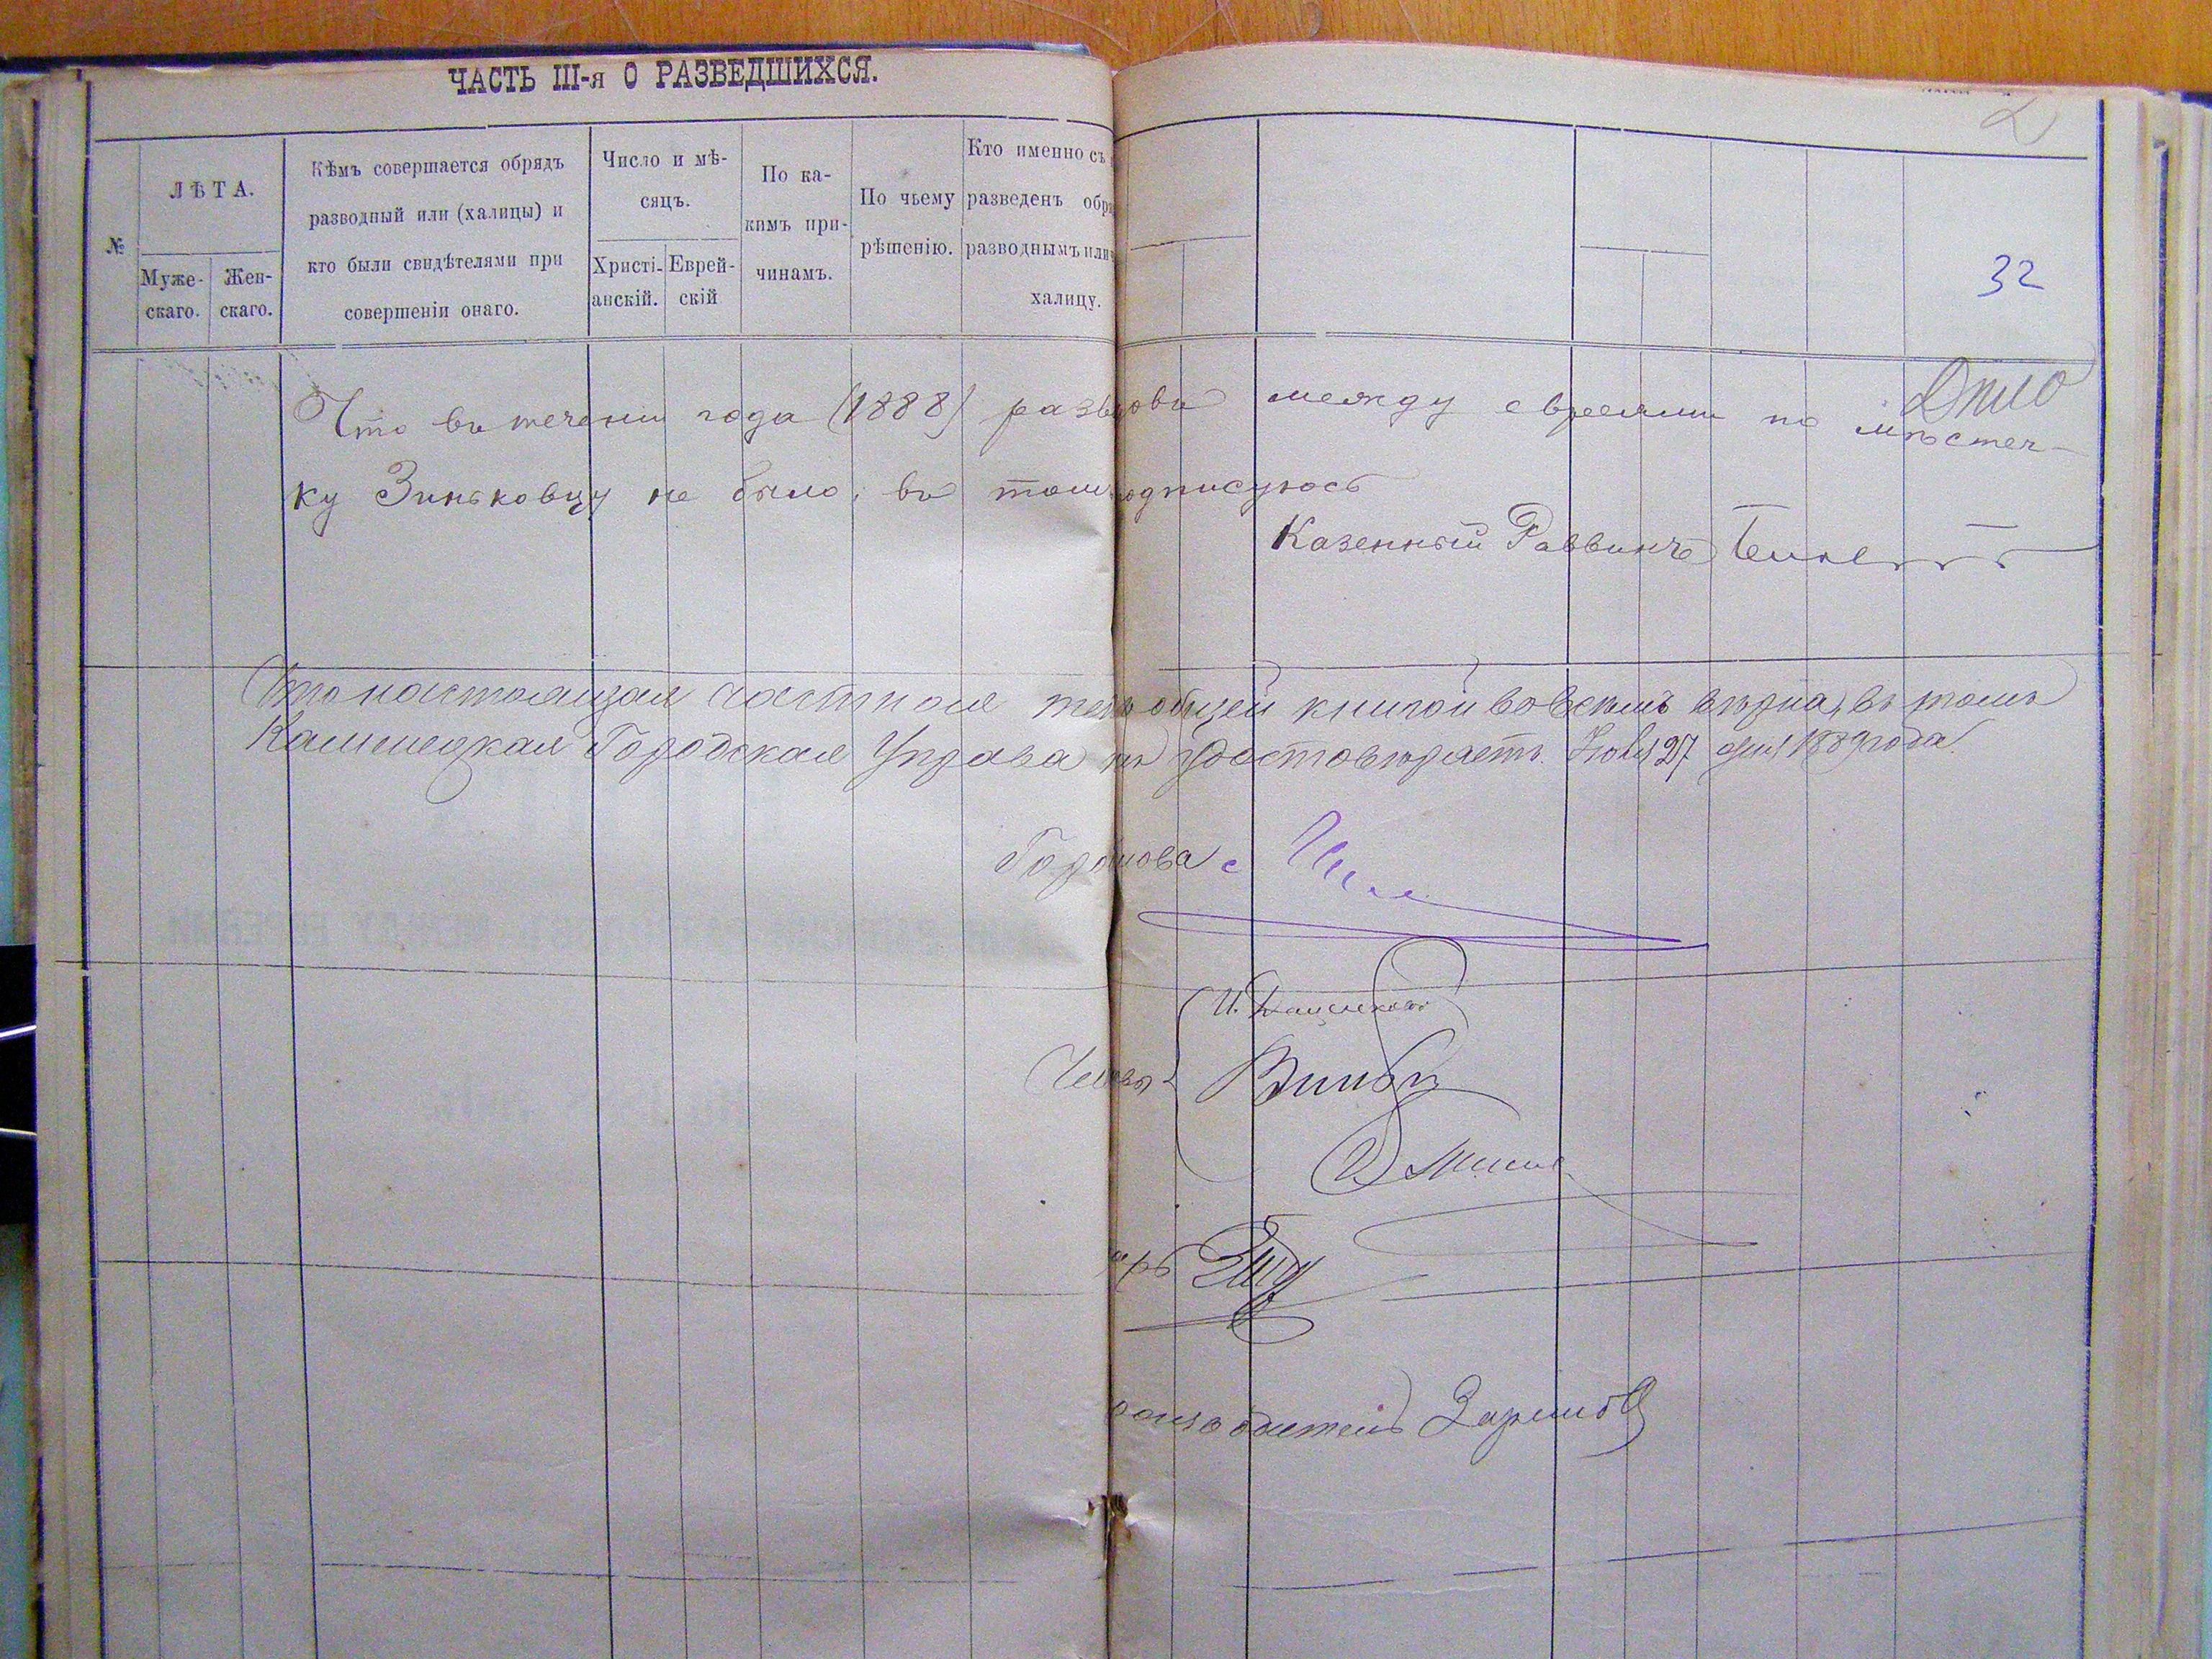 ЧАСТЬ III-я О РАЗВЕДШИХСЯ.
2
№
ЛѢТА.
Муже-
скаго.
Жен-
скаго.
Кѣмъ совершается обрядъ
разводный или (халицы) и
кто были свидѣтелями при
совершеніи онаго.
Число и мѣ-
сяцъ.
Христі-
анскій.
Еврей-
скій
По ка-
кимъ при-
чинамъ.
По чьему
рѣшенію.
Кто именно съ
разведенъ обря
разводнымъ или
халицу.
32
Что въ течении года (1888) разводовъ между евреями по мѣстеч-
ку Зиньковцу не было, въ томъ подписуюсь
Казенный Раввинъ
Что настоящая частная тетр общей книгой во всемъ вѣрна, въ томъ
Каменецкая Городская Управа удостовѣряетъ. Юля 27 дня 1889 года.
Голова
Члены
арь